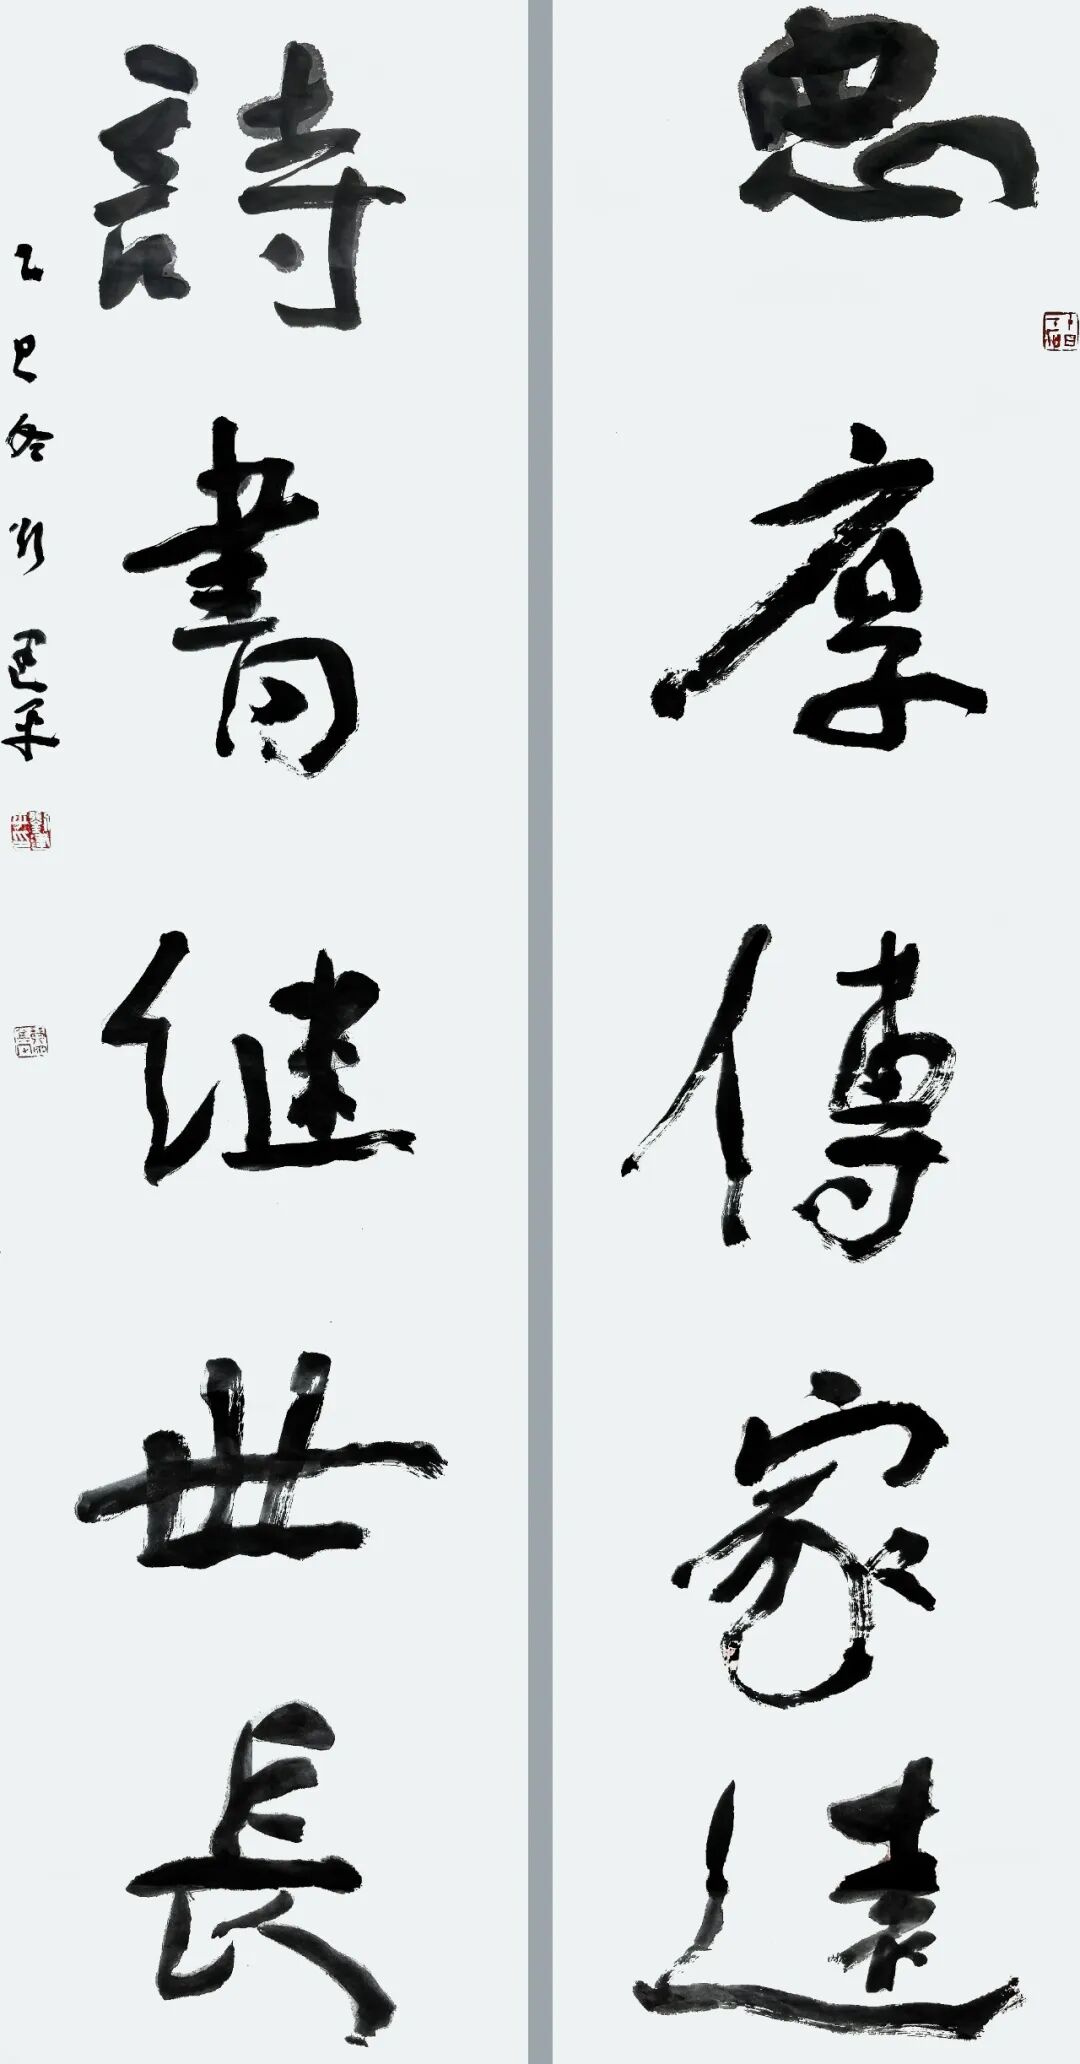 忠厚傳家遠
詩書继世長
乙巳冬月 建平